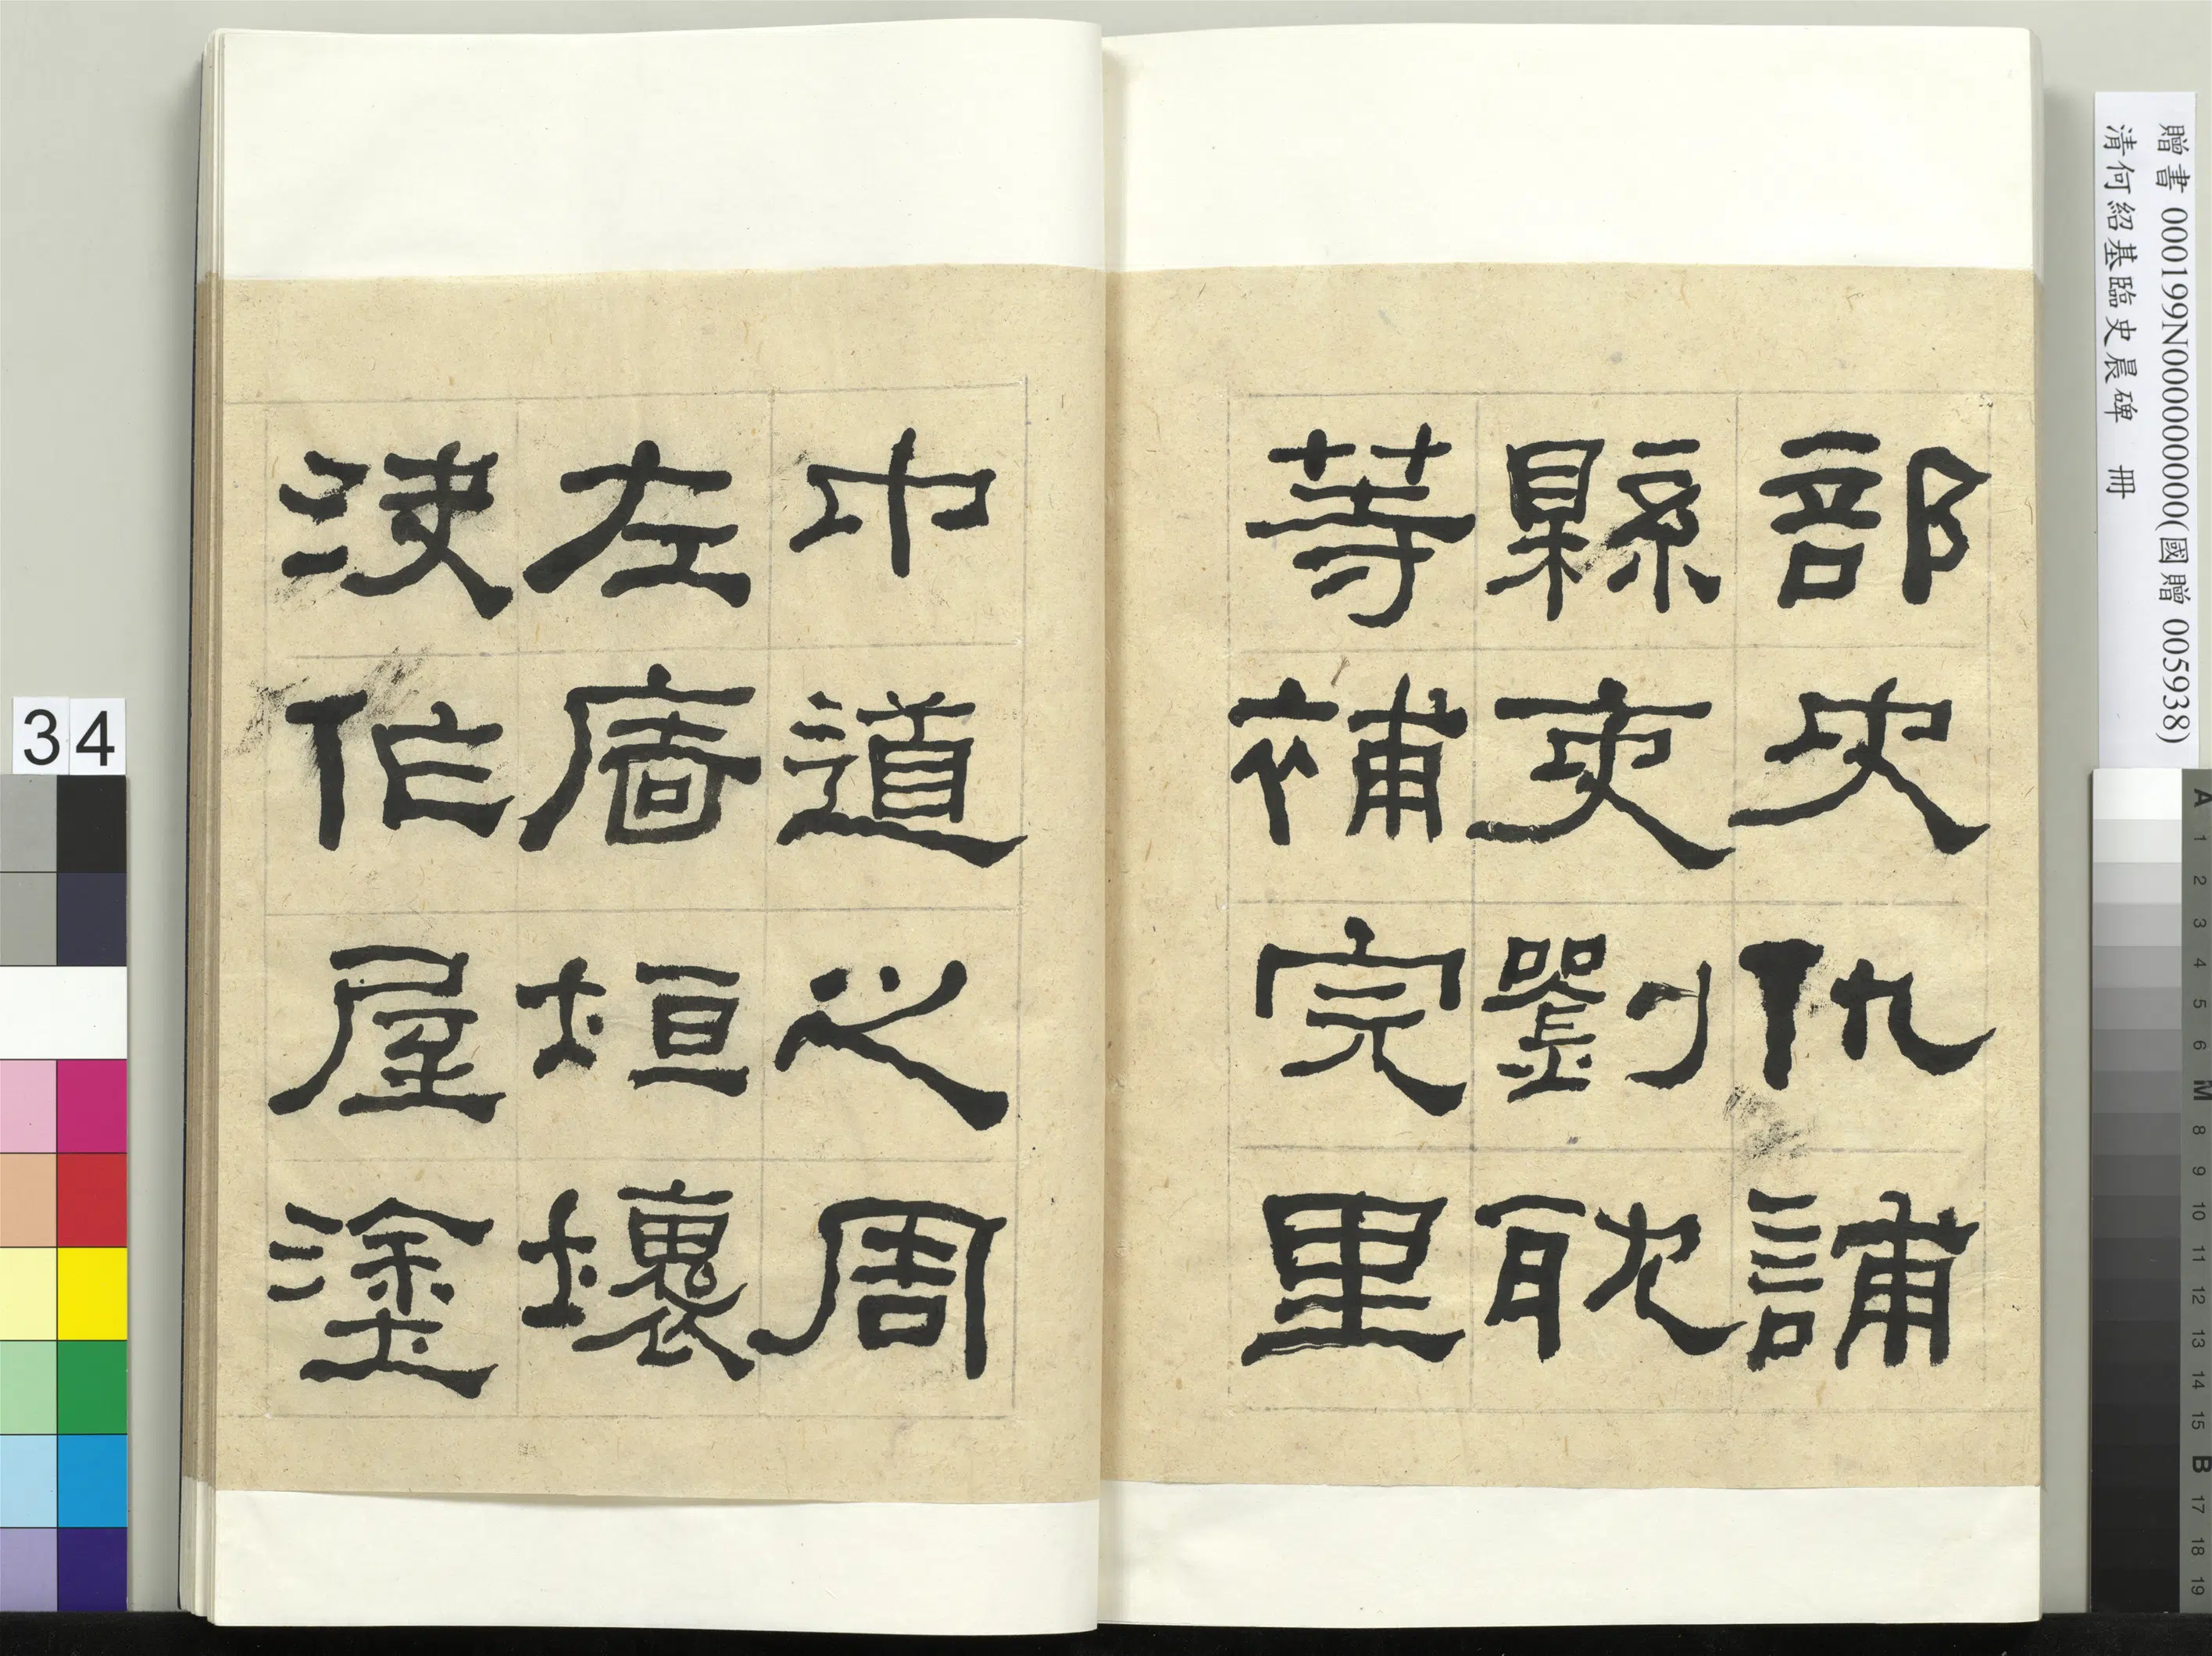 贈書 000199N000000000(國贈 005938)
清何紹基臨史晨碑 冊
部史仇誧
縣吏劉耽
等補完里
中道之周
左廧垣壞
決作屋塗
34
A 1 2 3 4 5 6 M 8 9 10 11 12 13 14 15 B 17 18 19